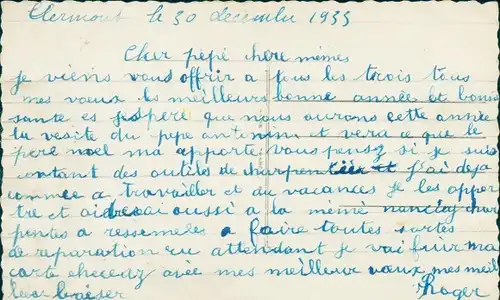 Clermont le 30 decembre 1933
Cher pépé chere mémes
Je viens vous offrir a tous les trois tous
mes vœux les meilleurs bonne année et bonne
sante es jespère que nous aurons cette année
la vesite du pepe antonin et vera ce que le
pere noel ma apporte vous pensez si je suis
contant des outils de charpentier et j'ai deja
commee a travailler et au vacances je les apper
tre et aiderai aussi a la mémé char
pentes a ressemeles a faire toutes sortes
de reparation en attendant je vai finir ma
carte avec mes meilleur vœux mes meil
leur baiser
Roger